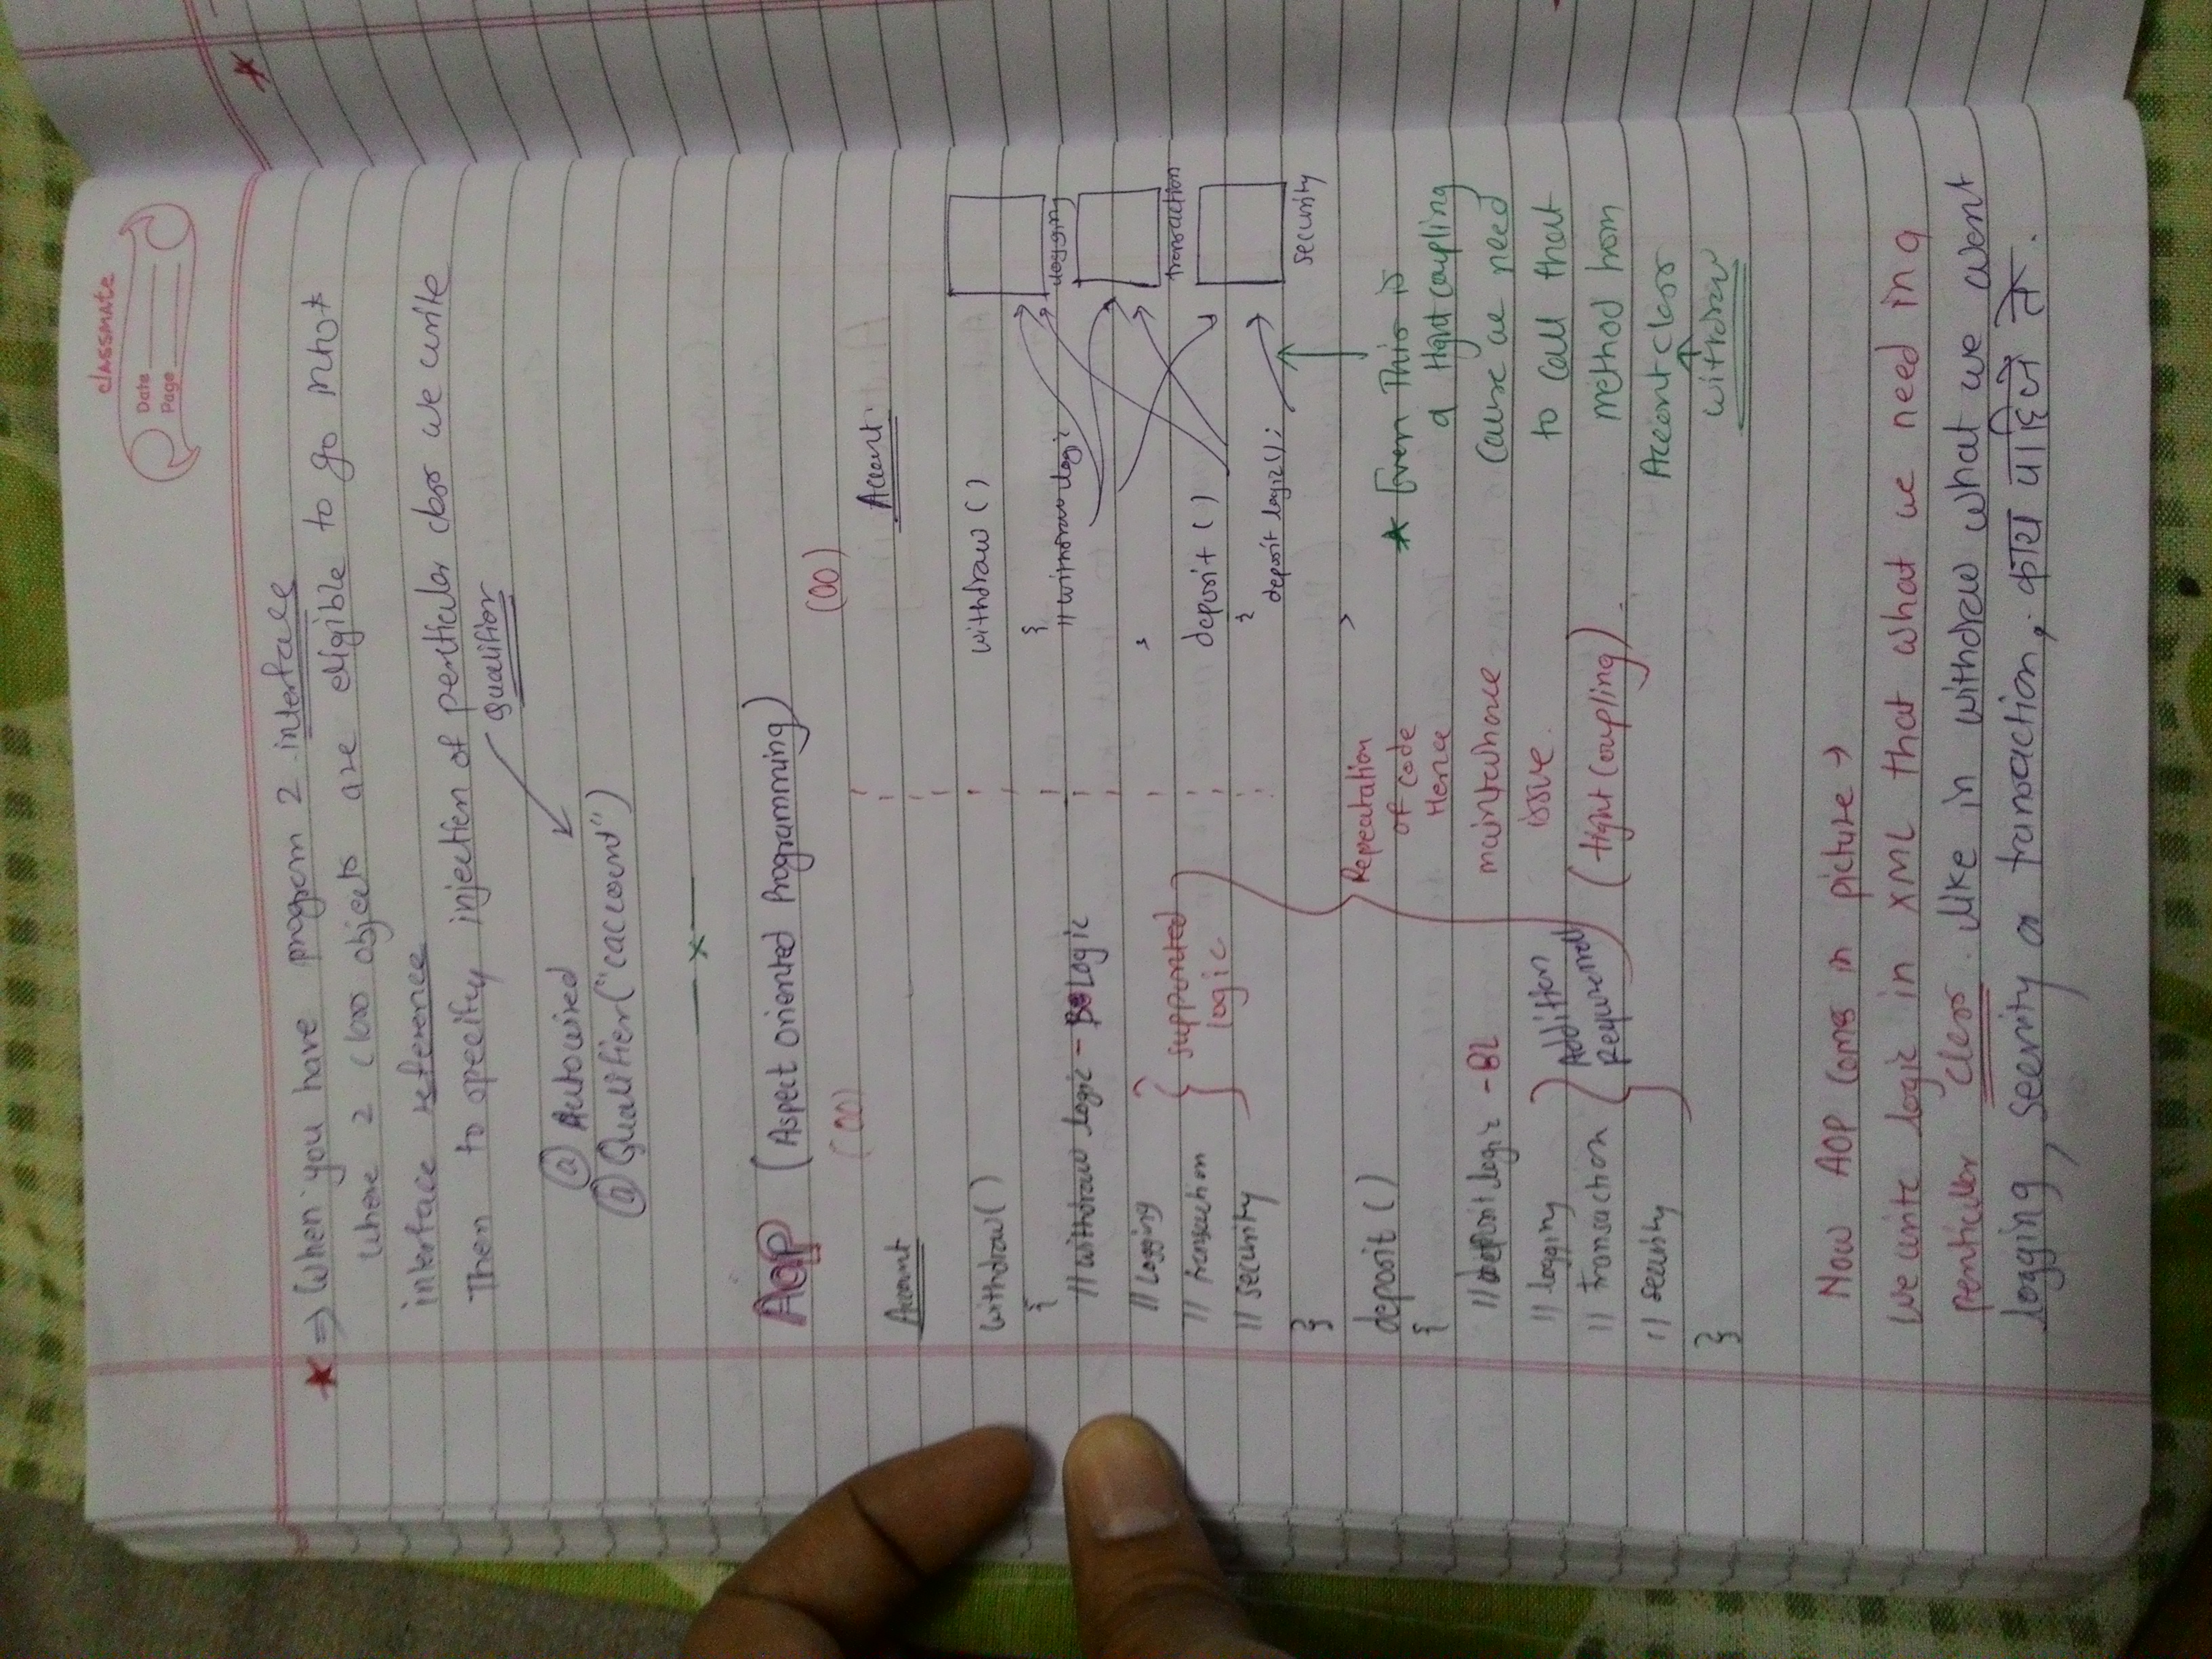 classmate
Date
Page
★ ⇒ When you have program 2 interface
where 2 class objects are eligible to go into*
interface reference
Then to specify injection of perticular class we write
Qualifier
@ Autowired
@ Qualifier("caccount")
— x —
AOP (Aspect Oriented Programming)
(OO)
Account
withdraw()
{
// withdraw logic - B Logic
// Logging
// transaction
// security
supported
logic
}
deposit ()
{
// deposit logic - BL
// logging
// transaction
// security
Addition
Requirement
}
Repeatation
of code
Hence
maintainance
issue.
(tight coupling)
(OO)
Account
withdraw ()
{
// withdraw logic
}
deposit ()
{
deposit logic();
}
logging
transaction
security
★ Even This is
a tight coupling
cause we need
to call that
method from
Account class
withdraw
Now AOP comes in picture →
We write logic in XML that what we need in a
perticular class. like in withdraw what we want
logging, security or transaction, काय पाहिजे ते.